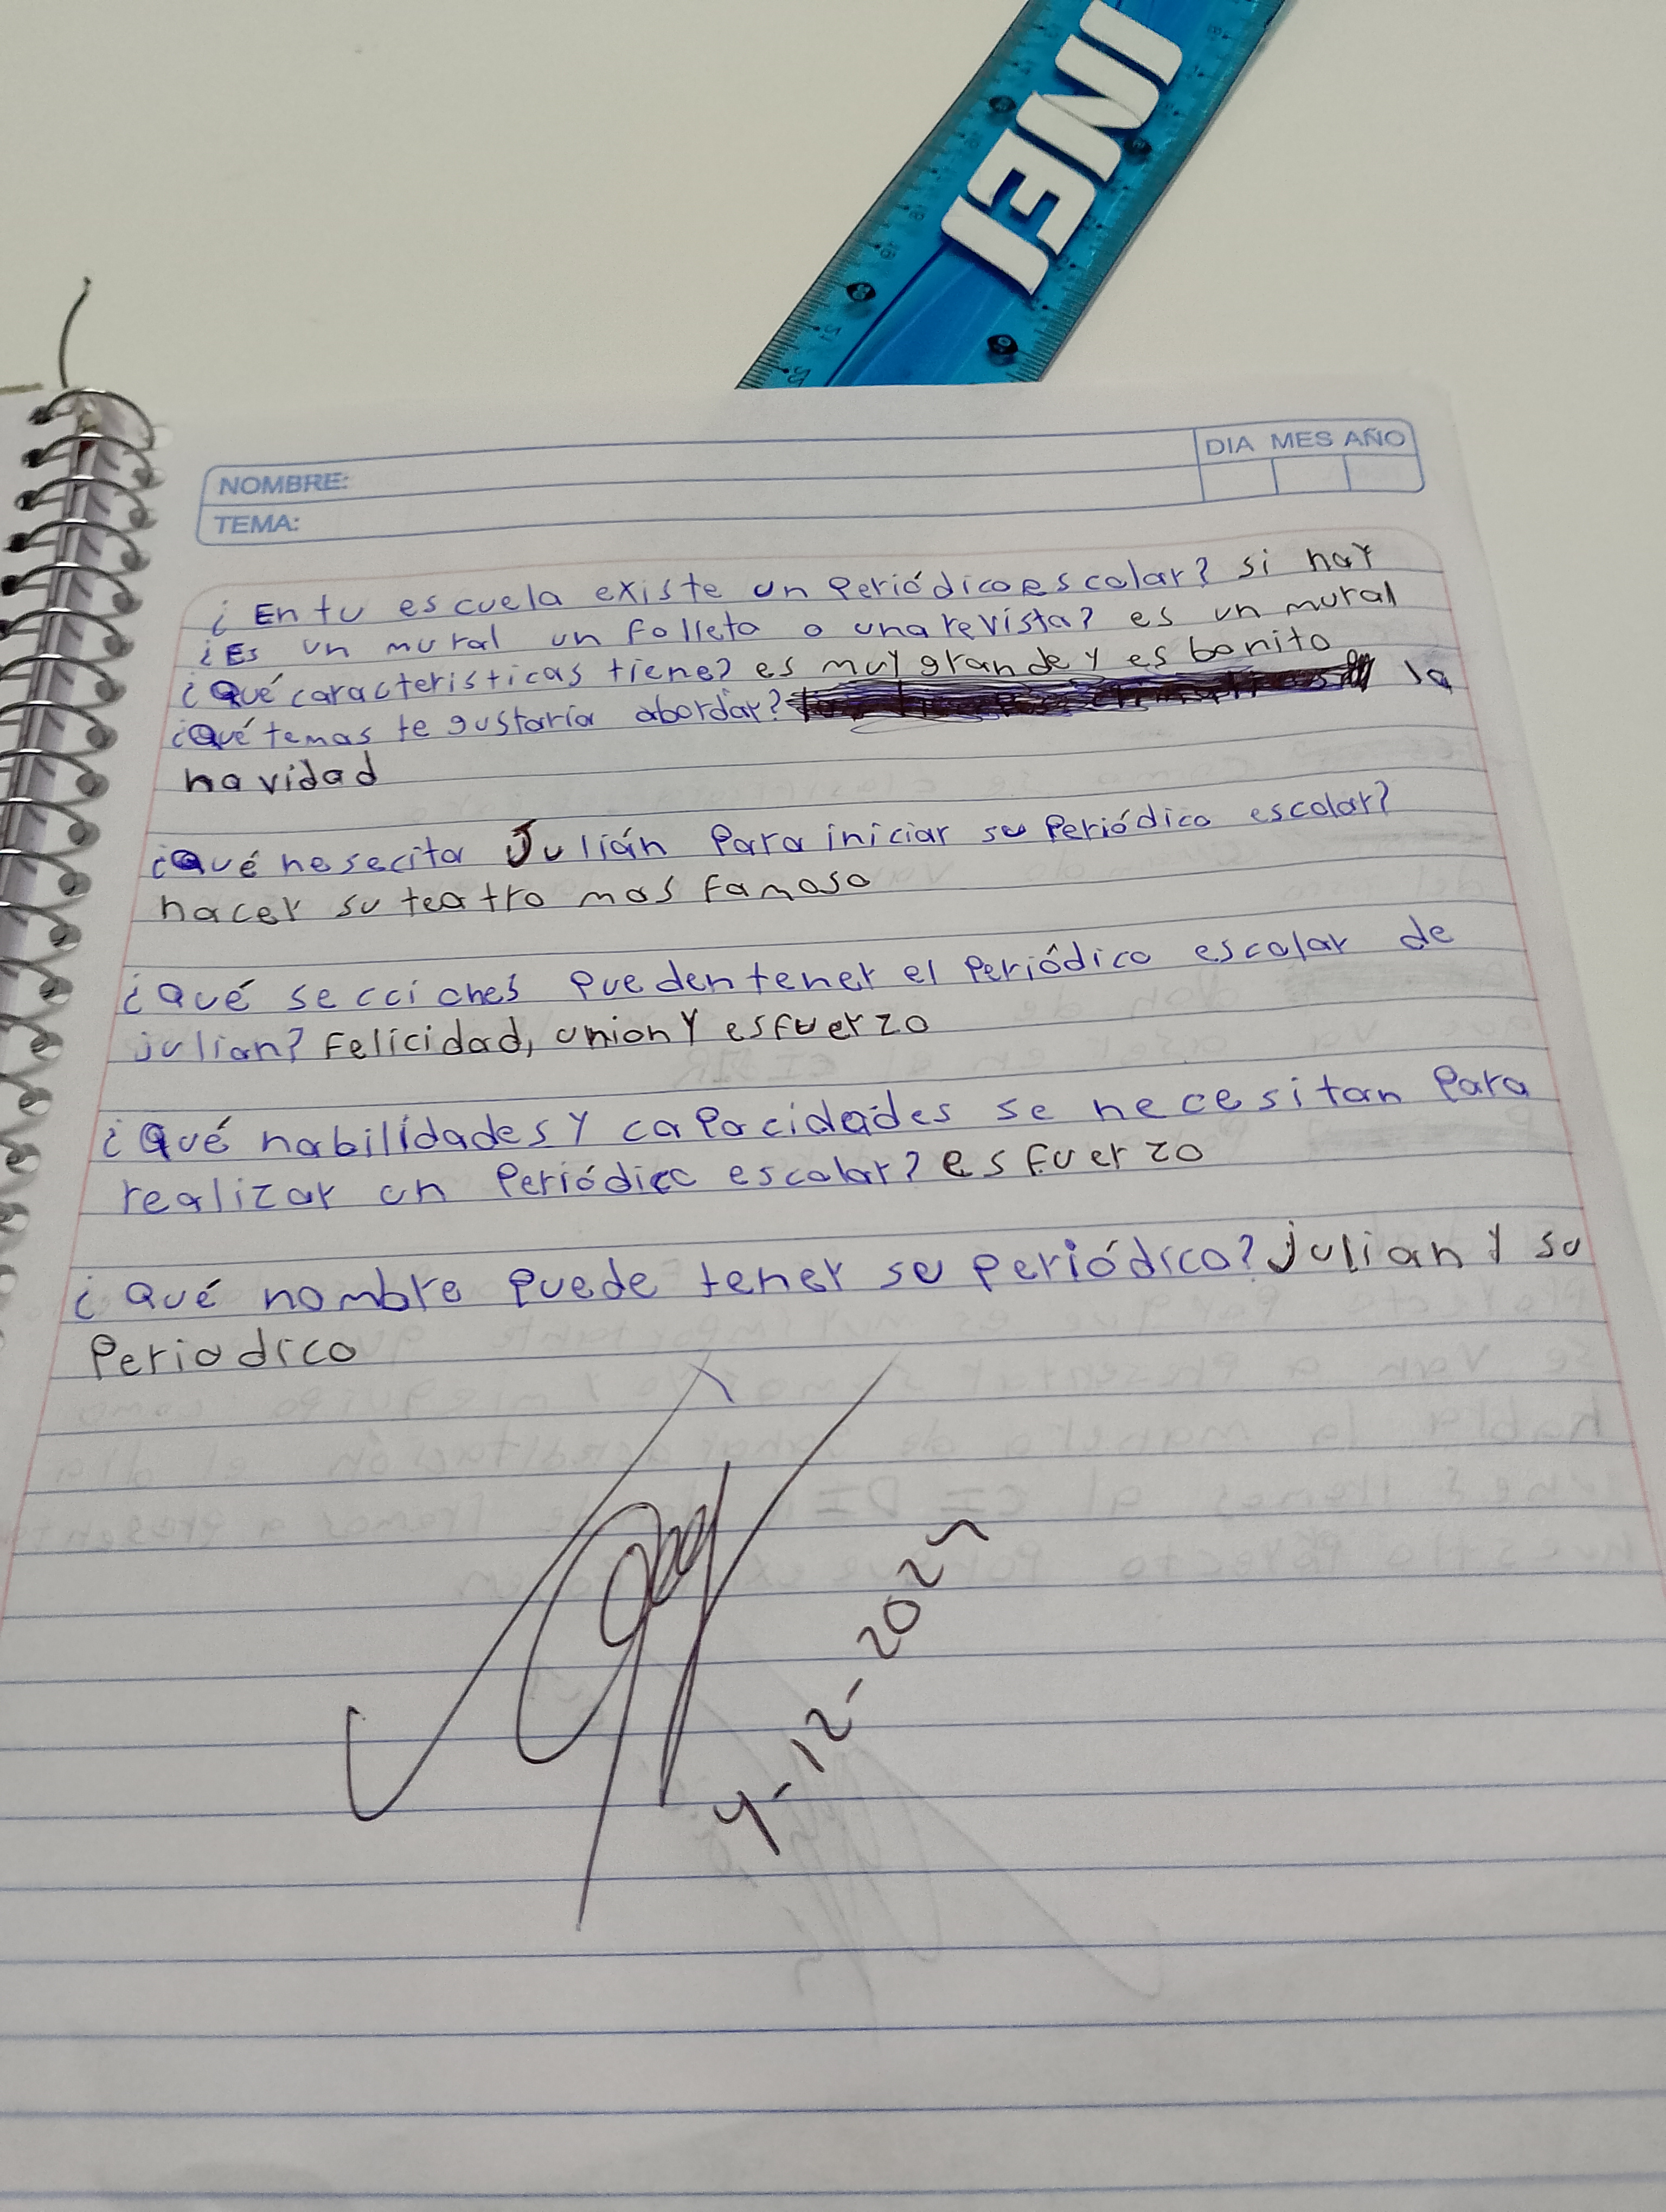 INE
NOMBRE:
DIA MES AÑO
TEMA:
¿En tu escuela existe un periódico escolar? si hay
¿Es un mural un folleto o una revista? es un mural
¿Qué caracteristicas tiene? es muy grande y es bonito
¿Qué temas te gustaria abordar? la
navidad
¿Qué nesecita Julián para iniciar su periódico escolar?
hacer su teatro mas famoso
¿Qué secciones pueden tener el periódico escolar de
julian? Felicidad, union y esfuerzo
¿Qué habilidades y capacidades se necesitan para
realizar un periódico escolar? esfuerzo
¿Qué nombre puede tener su periódico? julian y su
Periodico
4-12-2025